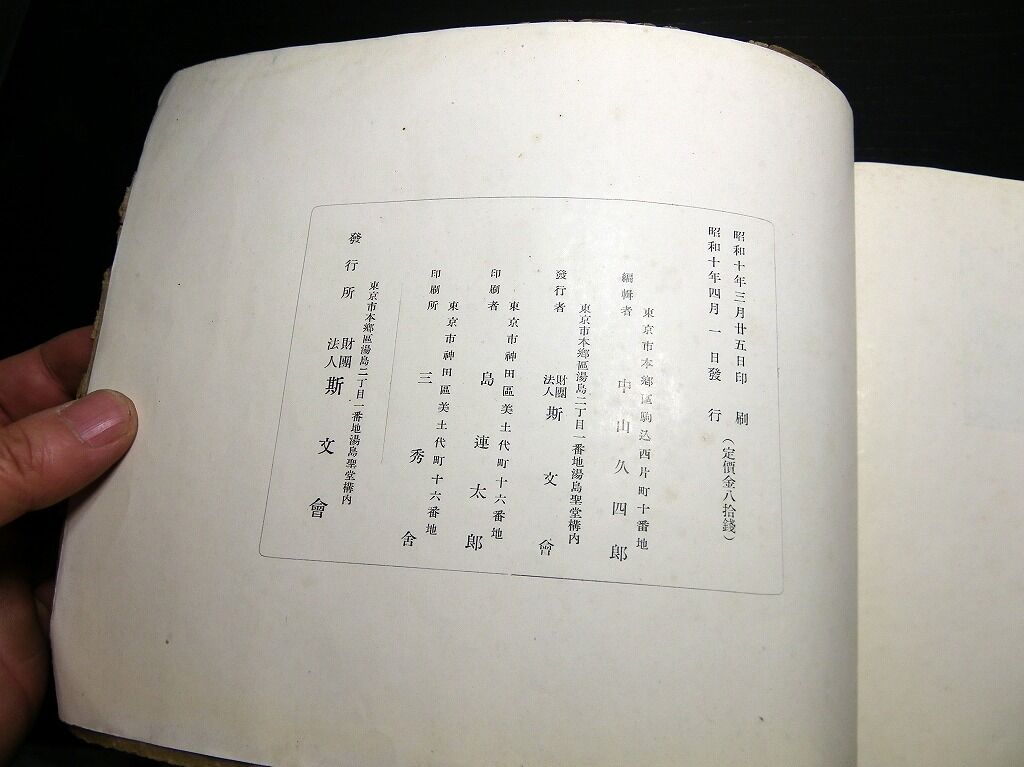 昭和十年三月廿五日印刷
昭和十年四月一日發行（定價金八拾錢）
東京市本鄕區駒込西片町十番地
編輯者 中山久四郎
東京市本鄕區湯島二丁目一番地湯島聖堂構內
發行者 財團法人 斯文會
東京市神田區美土代町十六番地
印刷者 島連太郎
東京市神田區美土代町十六番地
印刷所 三秀舍
東京市本鄕區湯島二丁目一番地湯島聖堂構內
發行所 財團法人 斯文會